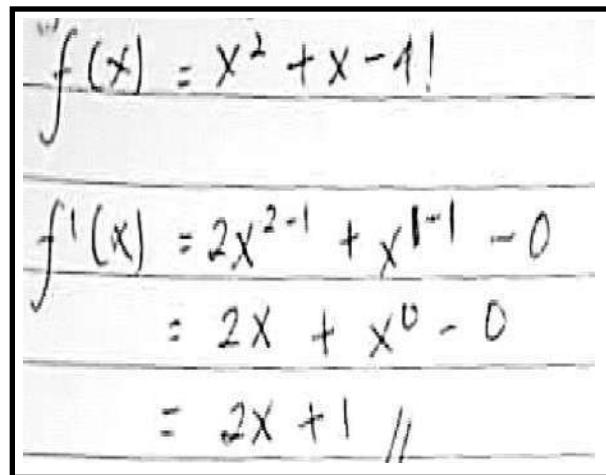 f(x) = x² + x - 1!
f'(x) = 2x²⁻¹ + x¹⁻¹ - 0
= 2x + x⁰ - 0
= 2x + 1 //